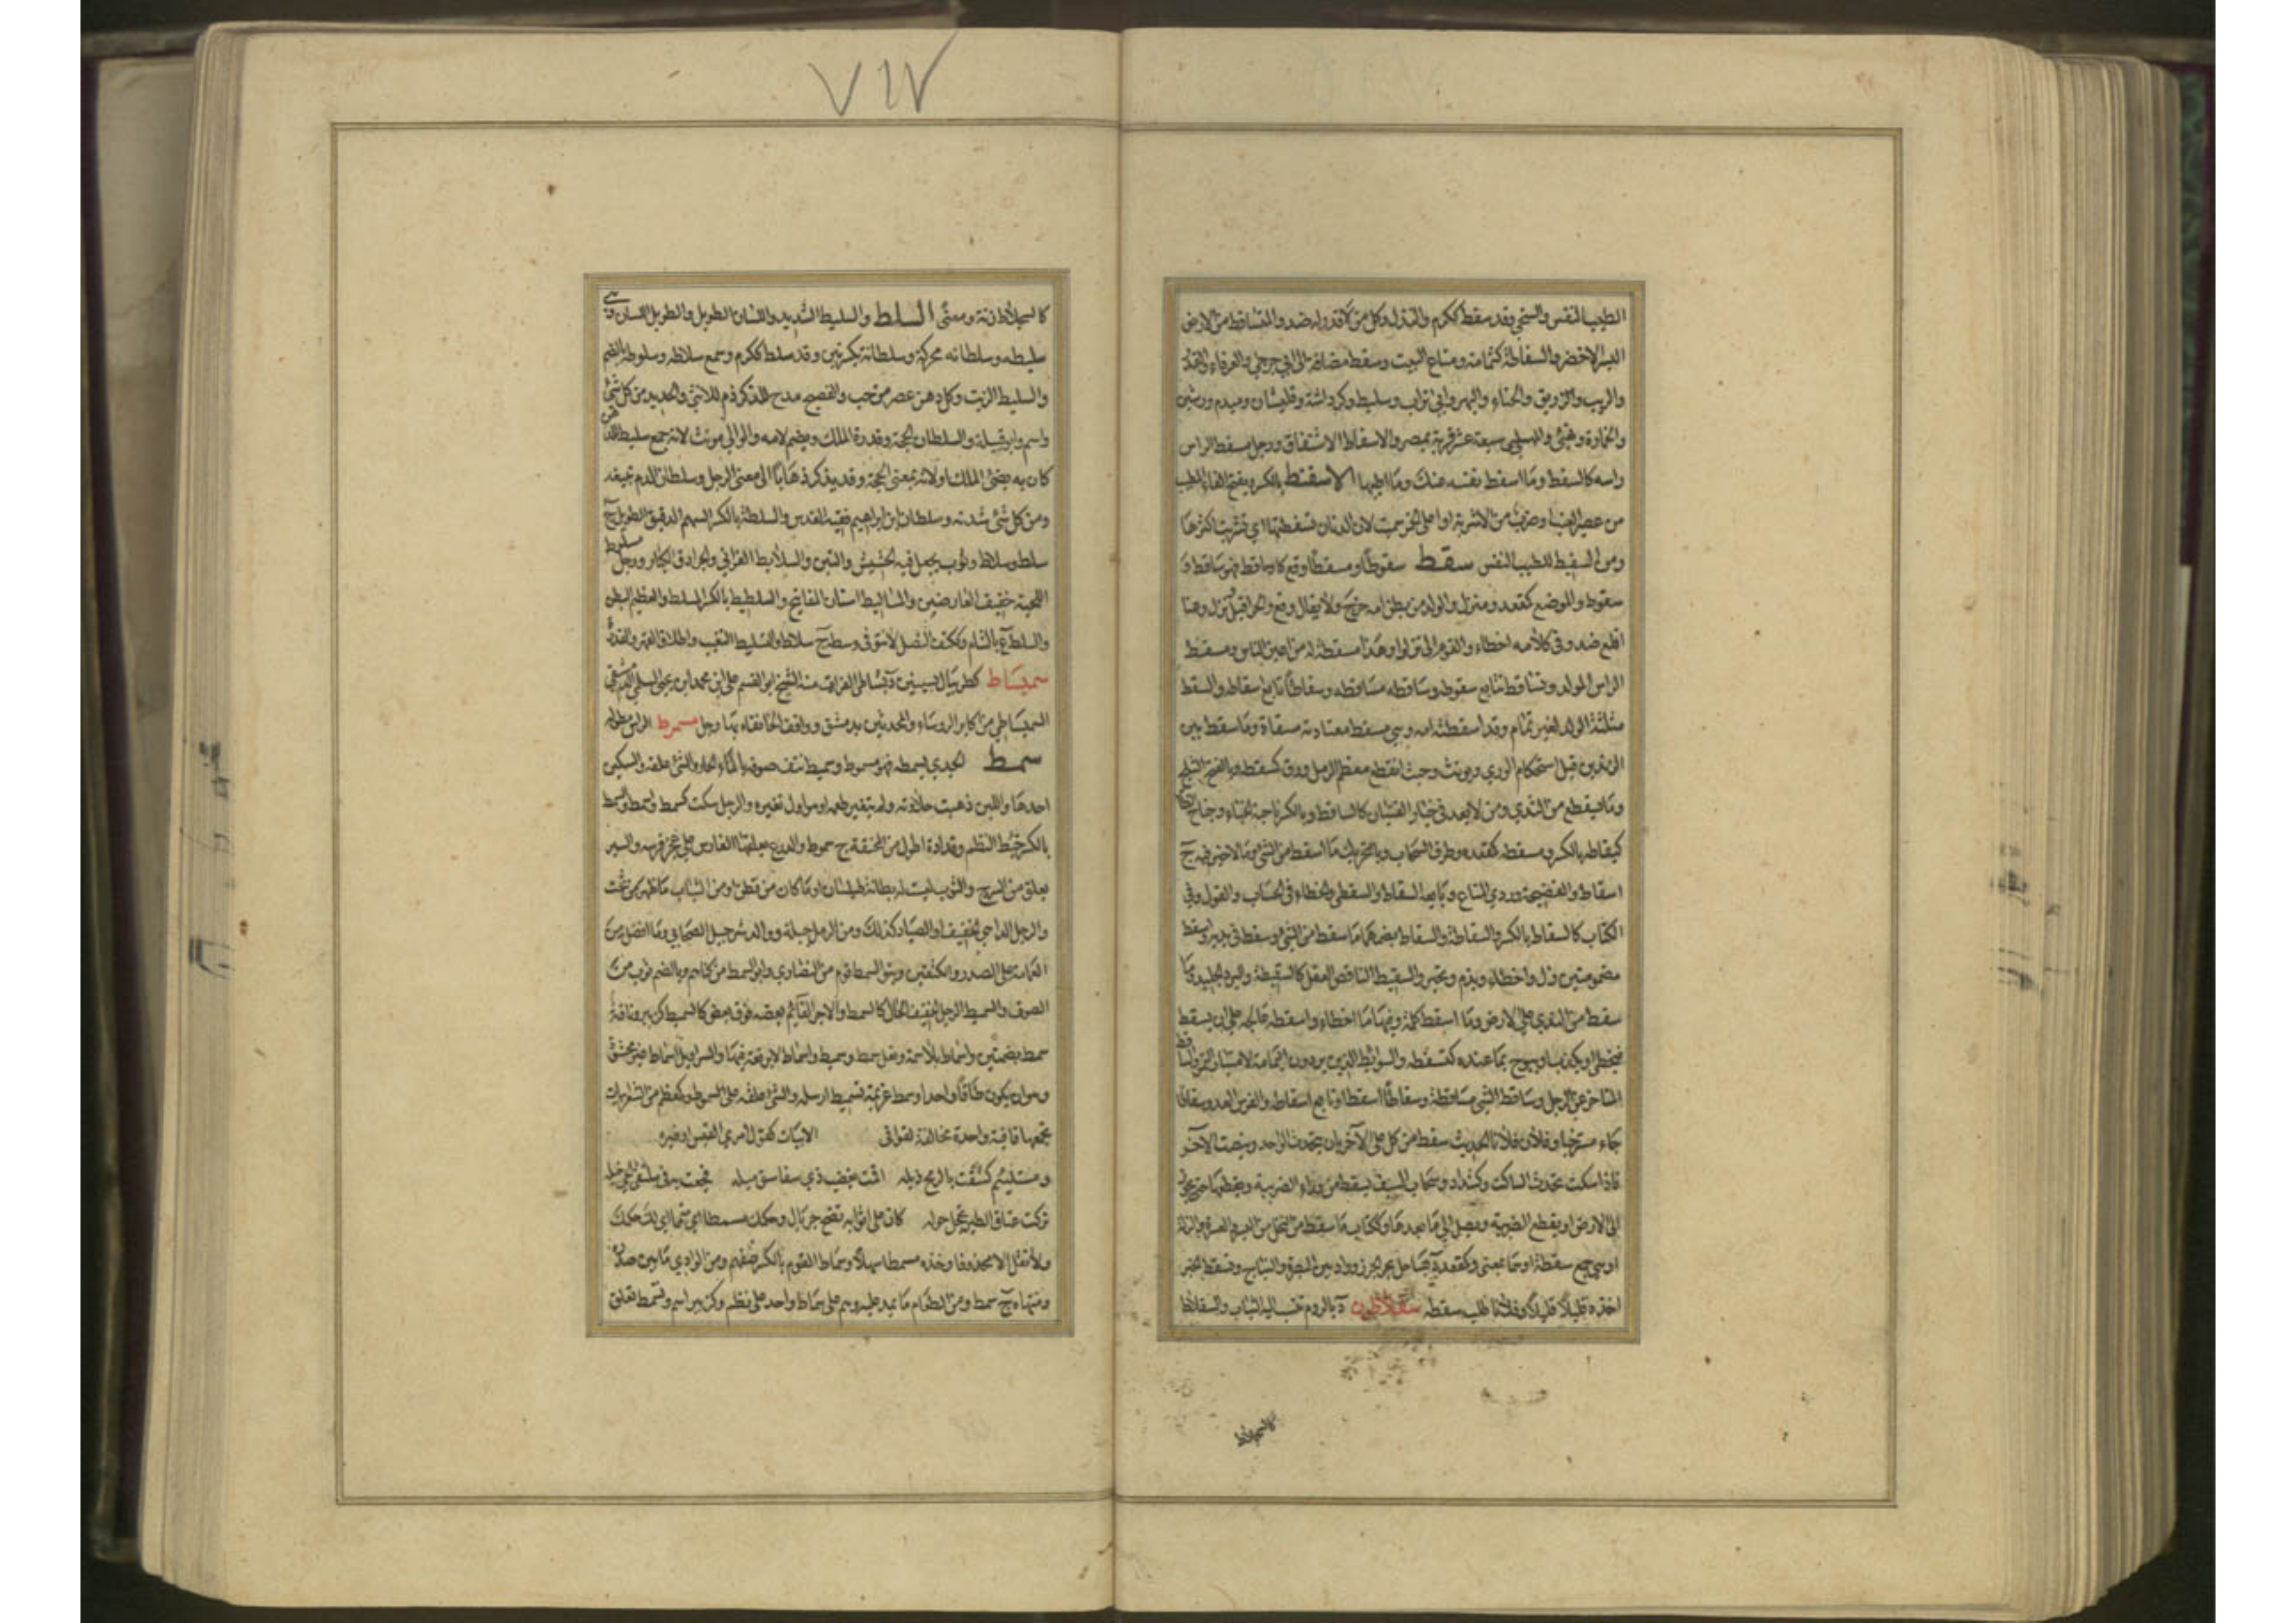 الطيب النفس والسخي وقد سفط ككرم والنذل وكل من لا قدر له ضد والمتساقط من الارض
البسر الاخضر والسفاطة كثمامة ومتاع البيت وسفط مضافة الى ابي جرجي والعرفاء والقدور
والزيت والزريق والحناء والبهو وابي تراب وسليط وكرداسة وقليشان وميدوم ورشين
والخمارة ونهيا والمهلبي سبعة عشر قرية بمصر والاسفاط الاشتفاف ورجل مسفط الراس
راسه كالسفط وما اسفط نفسه عنك وما اطيبها الاسفنط بالكسر ويفتح الفاء المطيب
من عصير العنب او ضرب من الاشربة او اعلى الخمر سميت لان الدنان تسفطتها اي تشربت اكثرها
ومن السفيط للطيب النفس سقط سقوطا ومسقطا وقع كاساقط فهو ساقط و
سقوط والموضع كمقعد ومنزل والولد من بطن امه خرج ولا يقال وقع والحر اقبل ونزل وعنا
اقلع ضد وفي كلامه اخطاء والقوم الي نزلوا وهذا مسقطة له من اعين الناس ومسقط
الراس المولد وتساقط تتابع سقوطه وساقطه مساقطه وسقاطا تابع اسقاطه والسقط
مثلثة الولد لغير تمام وقد اسقطته امه وهي مسقط معتادته مسقاط وما سقط بين
الزندين قبل استحكام الوري ويونث وحيث انقطع معظم الرمل ورق كمسقطه وبالفتح الثلج
وما يسقط من الندي ومن لا يعد في خيار الفتيان كالساقط وبالكسر ناحية الخباء وجناح الطائر
كسقاطه بالكسر ومسقطه كمقعده وطرف السحاب وبالتحريك ما اسقط من الشي وما لا خير فيه ج
اسقاط والفضيحة وردي المتاع وبايعه السقاط والسقطي والخطاء في الحساب والقول وفي
الكتاب كالسقاط بالكسر والسقاطة والسقاط بضمهما ما سقط من الشي وسقط في يده واسقط
مضمومتين زل واخطاء وندم وتحير والسقيط الناقص العقل كالسقيطة والبرد والجليد وما
سقط من الندي على الارض وما اسقط كلمة وفيها ما اخطاء واسقطه عالجه على ان يسقط
فيخطي او يكذب او يبوح بما عنده كتسقطه والسواقط الذين يردون اليمامة لامتيار التمر والساقط
المتاخر عن الرجل وساقط الشي مساقطة وسقاطا اسقطه او تابع اسقاطه والفرس العدو سقاطا
جاء مسترخيا وفلان فلانا الحديث سقط من كل على الآخر بان يتحدث الواحد وينصت الآخر
فاذا سكت تحدث الساكت وكشداد وسحاب السيف يسقط من وراء الضريبة ويقطعها حتى يجوز
الى الارض او يقطع الضريبة ويصل الى ما بعدها وككتاب ما سقط من النخل من البسر والعسرة والزلة
او هي جمع سقطة او هما بمعنى وكمقعد د بساحل بحر الخزر وواد بين البصرة والنباج وتسقط الخبر
اخذه قليلا قليلا وفلانا طلب سقطه سقلاطون د بالروم تنسب اليه الثياب والسقلاط
كالسجلاط
كالسجلاط زنة ومعنى السلط والسليط الشديد واللسان الطويل والطويل اللسان وهي
سليطه وسلطانه محركة وسلطانة بكسرتين وقد سلط ككرم وسمع سلاطه وسلوطة بالضم
والسليط الزيت وكل دهن عصر من حب والفصيح مدح للذكر ذم للانثى والحديد من كل شي
واسم وابو قبيلة والسلطان الحجة وقدرة الملك ويضم لامه والوالي مونث لانه جمع سليط للدهن
كان به يضي الملك او لانه بمعنى الحجة وقد يذكر ذهابا الى معنى الرجل وسلطان الدم تبيغه
ومن كل شي شدته وسلطان ابن ابراهيم فقيه القدس والسلطة بالكسر السهم الدقيق الطويل ج
سلط وسلاط وثوب يجعل فيه الحشيش والتبن والسلايط الفراني والجرادق الكبار ورجل مسلوط
اللحية خفيف العارضين والمساليط اسنان المفاتيح والسلطيط بالكسر المسلط والعظيم البطن
والسلط ع بالشام وككتف النصل لا نتو في وسطه ج سلاط والتسليط التغليب واطلاق القهر والقدرة
سميساط كطربيال بسينين د بشاطى الفرات منه الشيخ ابو القسم على ابن محمد ابن يحيى السلمي الدمشقي
السميساطي من اكابر الروساء والمحدثين بدمشق وواقف الخانقاه بها رجل مسمرط الراس طوله
سمط الجدي يسمطه فهو مسموط وسميط نتف صوفه بالماء الحار والشي علقه والسكين
احدها واللبن ذهبت حلاوته ولم يتغير طعمه او هو اول تغيره والرجل سكت كسمط واسمط والسمط
بالكسر خيط النظم وقلادة اطول من المخنقة ج سموط والدرع يعلقها الفارس على عجز فرسه والسير
يعلق من السرج والثوب ليست له بطانة طيلسان او ما كان من قطن او من الثياب ما ظهر من تحت
والرجل الداهي الخفيف او الصياد كذلك ومن الرمل حبله ووالد شرحبيل الصحابي وما افضل من
العمامة على الصدر والكتفين وبنو السمط قوم من النصاري وابو السمط من كناهم وبالضم ثوب من
الصوف والسميط الرجل الخفيف الحال كالسمط والآجر القايم بعضه فوق بعض كالسميط كزبير وناقة
سمط بضمتين واسماط بلا سمة ونعل سمط وسميط واسماط لا رقعة فيها والسراويل اسماط غير محشوة
وهو ان يكون طاقا واحدا وسمط غريمه تسميطا ارسله والشي علقه على السموط وكمعظم من الشعر ابيات
تجمعها قافية واحدة مخالفة لقوافي الابيات كقول امري القيس وغيره
ومستلئم كشفت بالرمح ذيله اقمت بعضب ذي سفاسق ميله فجعت به في ملتقى الحي خيله
تركت عتاق الطير تحجل حوله كان على اثوابه نضح جريال وحكمك مسمطا اي متمما اي لك حكمك
ولا يستعمل الا محذوفا وخذه مسمطا سهلا وسماط القوم بالكسر صفهم ومن الوادي ما بين صدره
ومنتهاه ج سمط ومن الطعام ما يمد عليه وهم على سماط واحد على نظم وكزبير اسم وتسمط تعلق